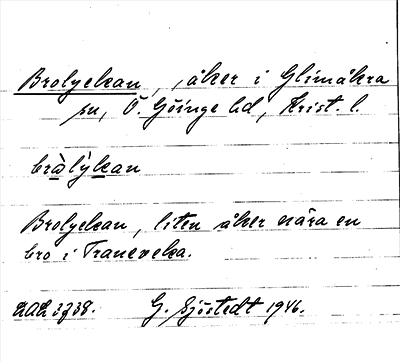 Brolyckan, åker i Glimåkra
sn, Ö. Göinge hd, Krist. l.
bròlỳkan
Brolyckan, liten åker nära en
bro i Traneveka.
LAL 3738. G. Sjöstedt 1946.